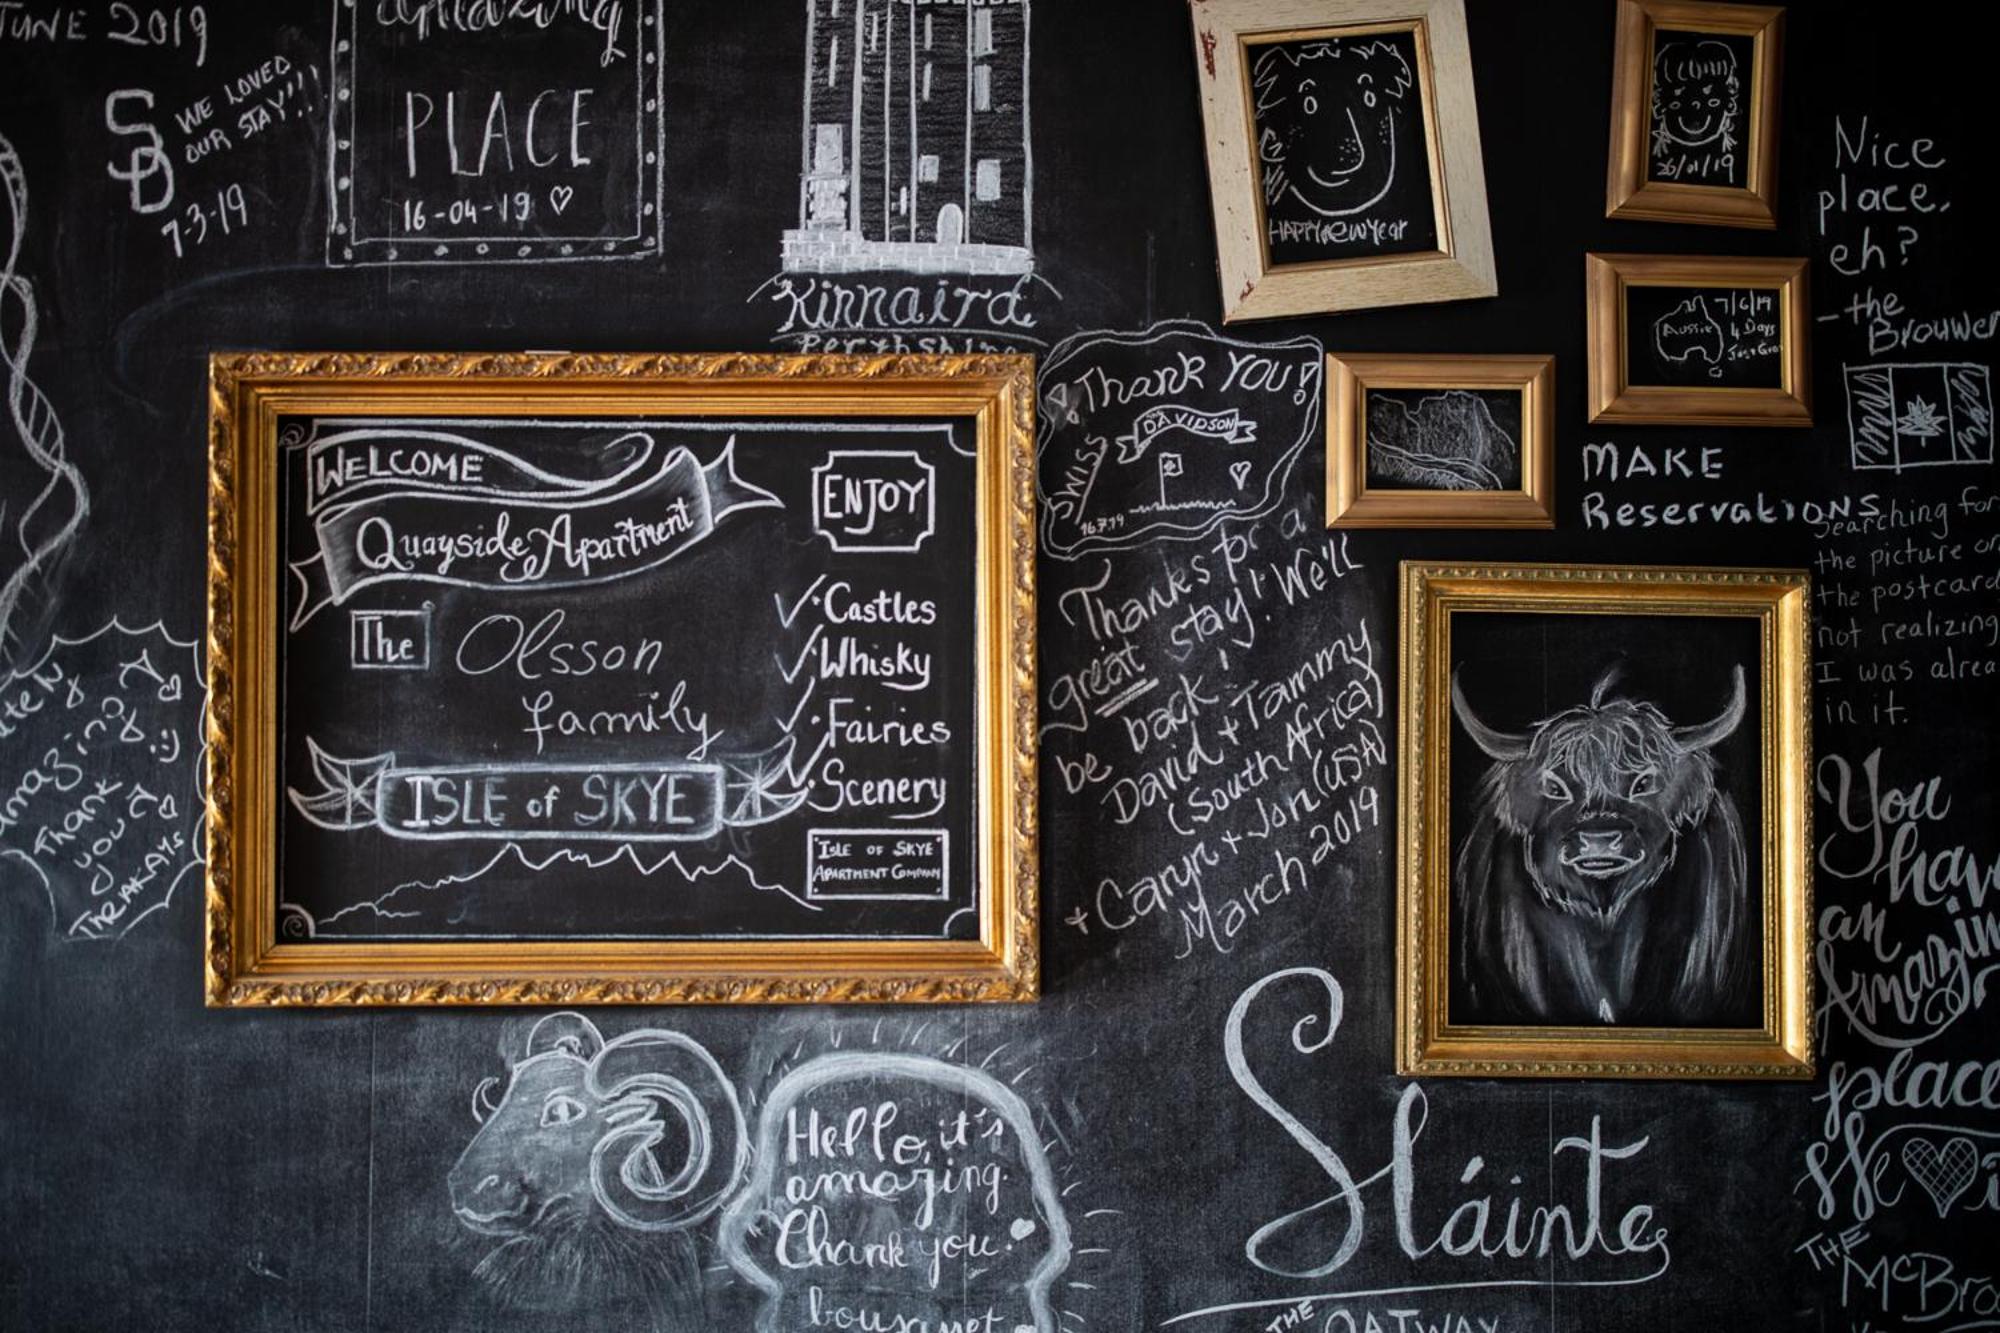 JUNE 2019
SD
WE LOVED
OUR STAY!!!
7-3-19
amazing
PLACE
16-04-19
Kinnaird
Perthshire
HAPPY NEW Year
26/01/19
Nice
place,
eh?
- the
Brouwer
Aussie
7/6/19
4 Days
MAKE
Reservations
Searching for
the picture on
the postcard
not realizing
I was alrea
in it.
You
have
an
Amazin
place
We
THE
McBro
Thank YOU!
THE
DAVIDSON
SWISS
16.7.19
Thanks for a
great stay! We'll
be back!
David + Tammy
(South Africa)
+ Caryn + Jon (USA)
March 2019
WELCOME
Quayside Apartment
The Olsson
family
ISLE of SKYE
ENJOY
Castles
Whisky
Fairies
Scenery
"ISLE OF SKYE"
APARTMENT COMPANY
amazing
Thank
you
The KAYS
Hello, it's
amazing.
Thank you.
bousquet
Sláinte
THE
OATWAY